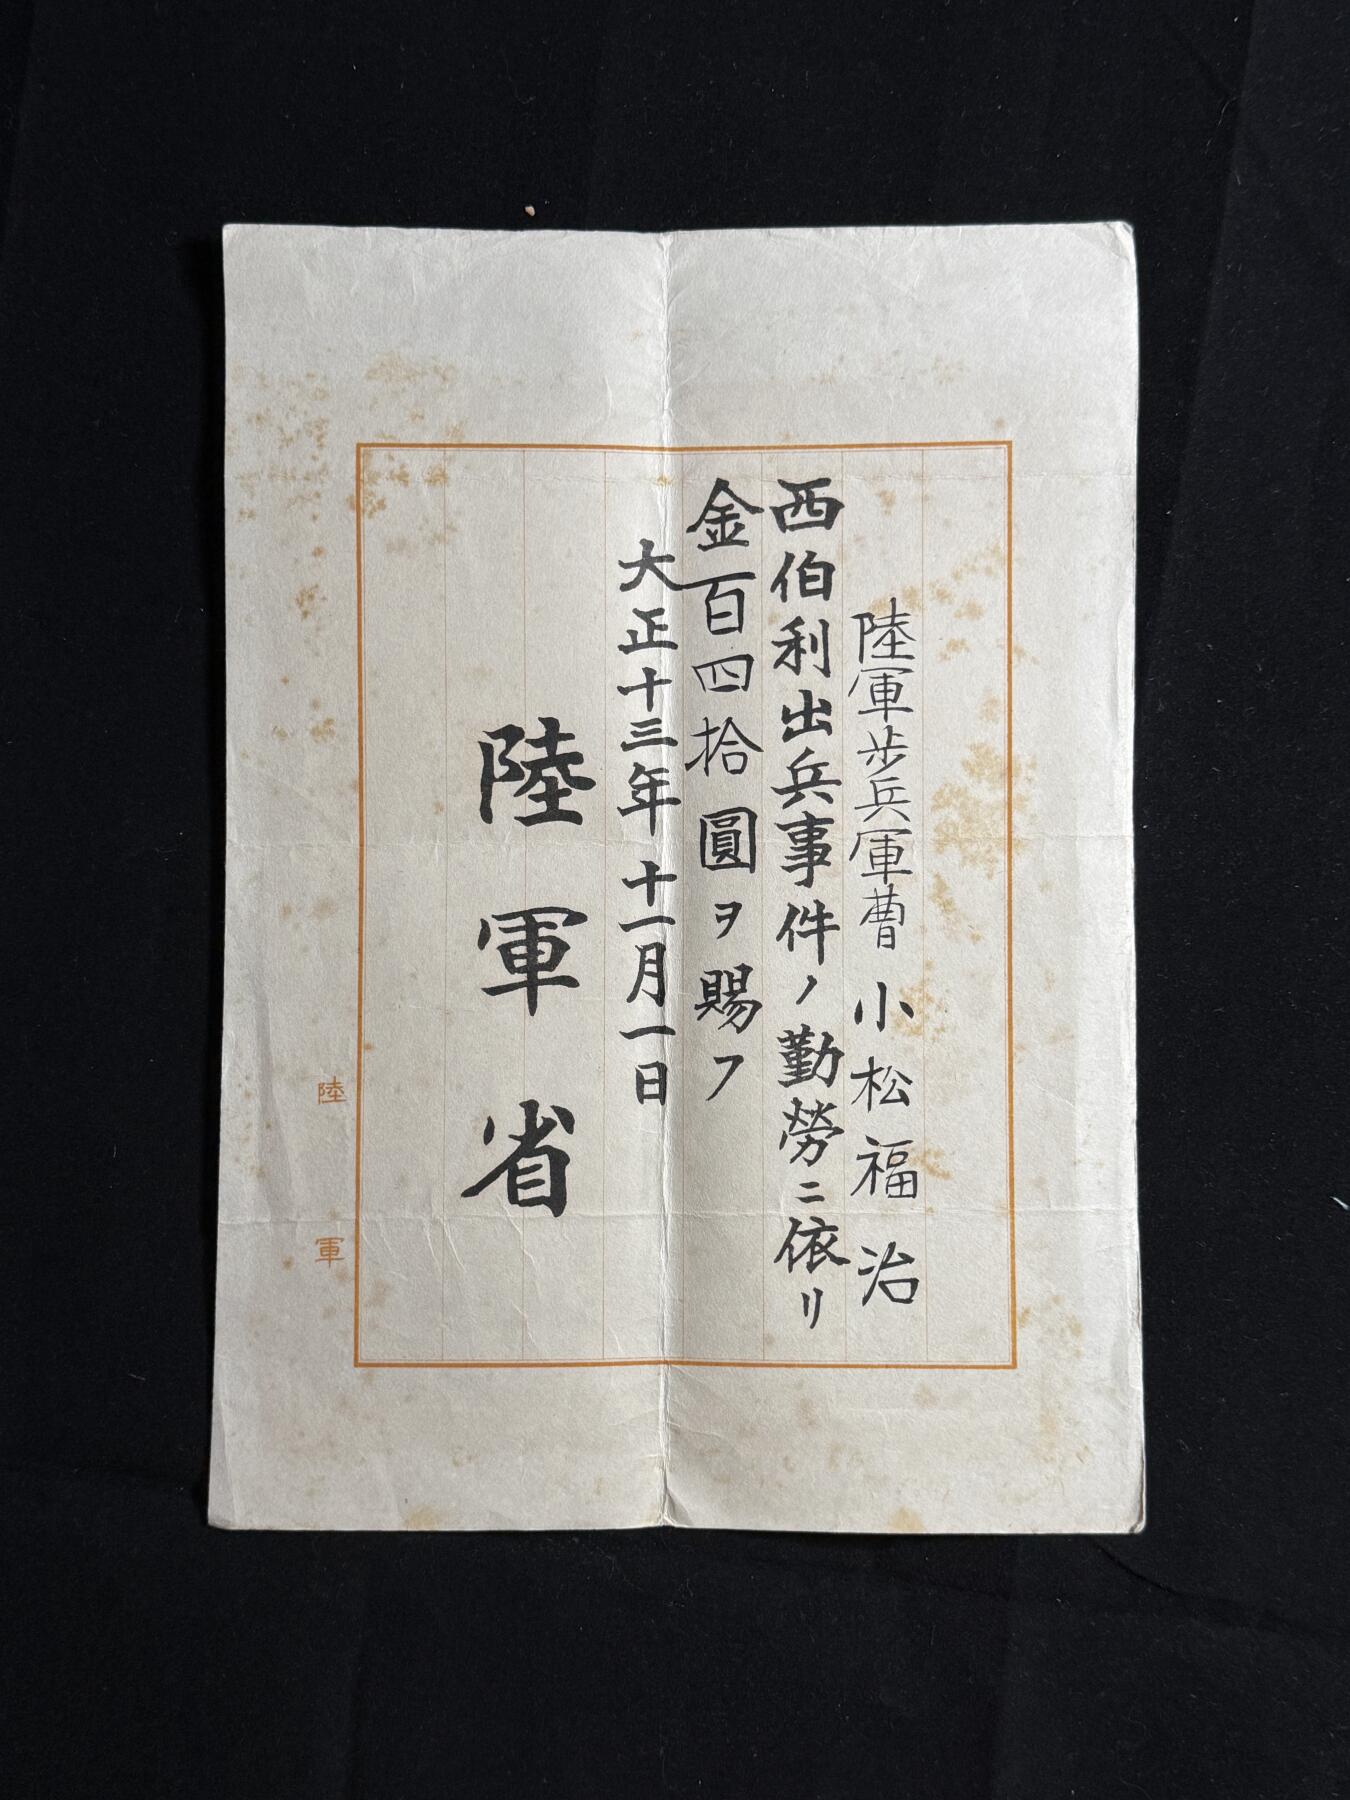 陸軍歩兵軍曹 小松福治
西伯利出兵事件ノ勤勞ニ依リ
金百四拾圓ヲ賜フ
大正十三年十一月一日
陸軍省
陸軍